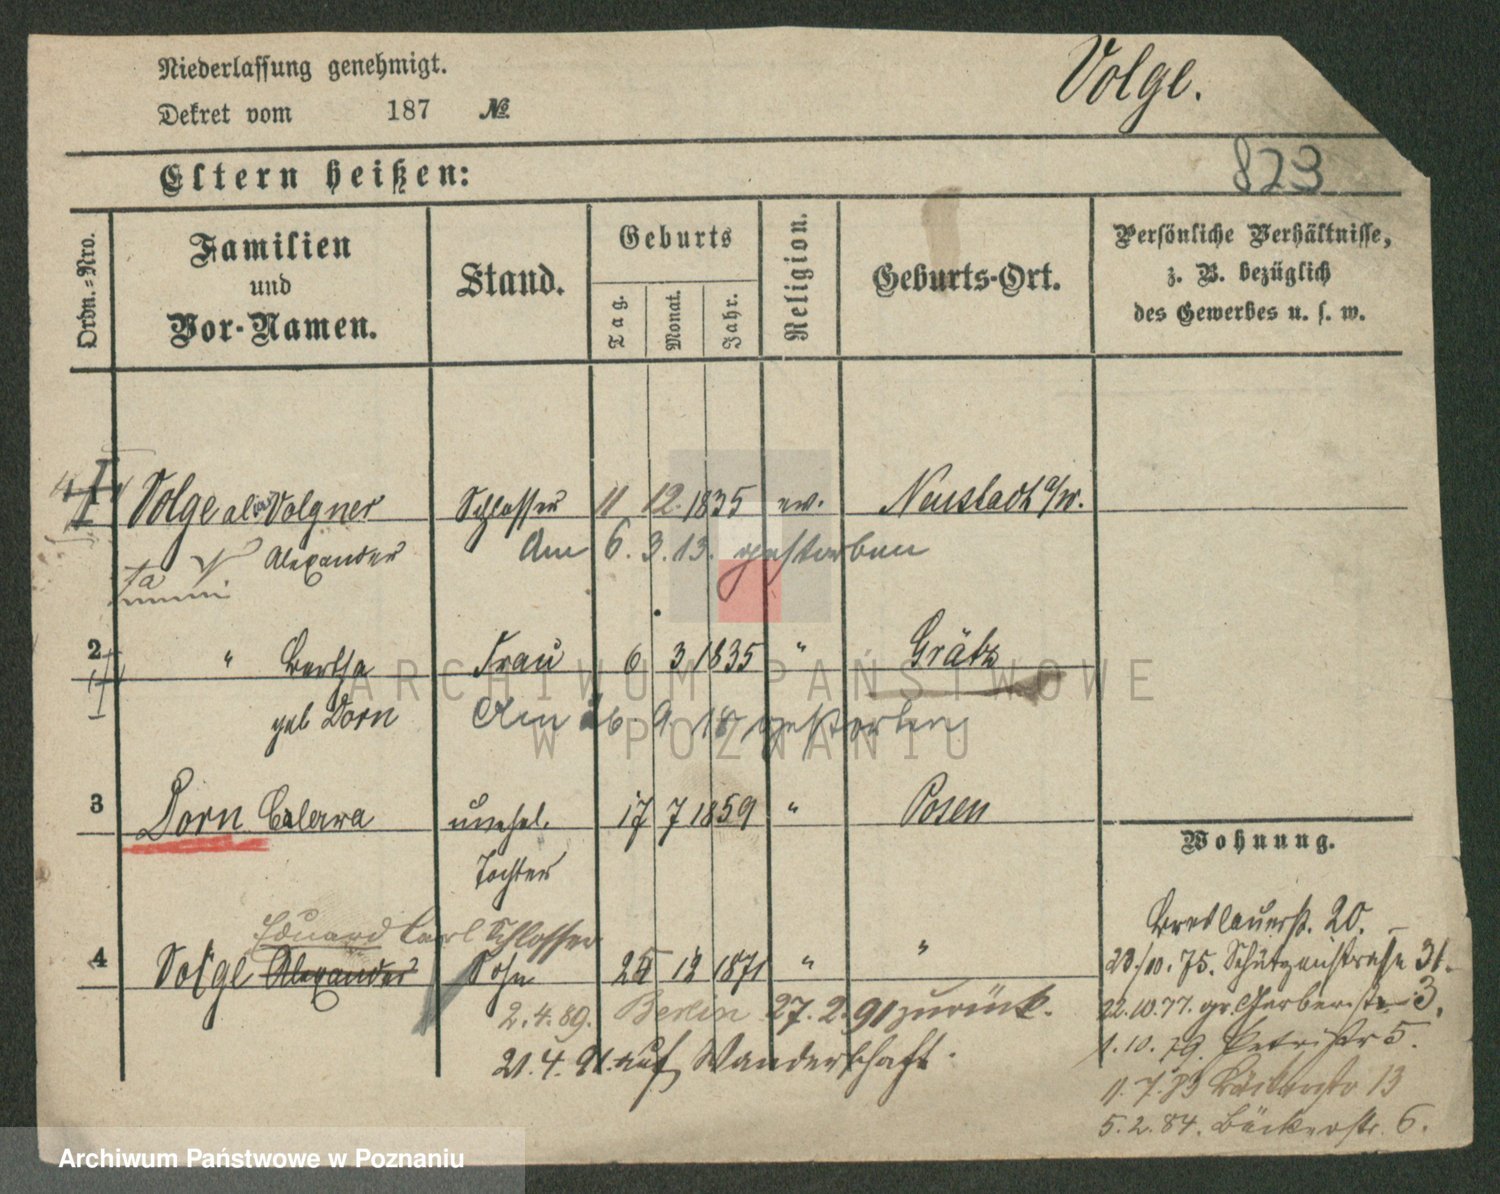 Niederlassung genehmigt.
Volge.
Dekret vom 187 №
Eltern heißen:
823
Ordn.-Nro.
Familien
und
Vor-Namen.
Stand.
Geburts
Tag.
Monat.
Jahr.
Religion.
Geburts-Ort.
Persönliche Verhältnisse,
z. B. bezüglich
des Gewerbes u. s. w.
Volge alias Volgner Schlosser 11 12. 1835 ev. Neustadt a/W.
Alexander Am 6. 3. 13. gestorben
2 " Bertha Frau 6 3 1835 " Grätz
geb Dorn Am 26 9 18 gestorben
3 Dorn unehel. 17 7 1859 " Posen
Tochter
Wohnung.
Eduard Carl Schlosser
4 Volge Alexander Sohn 12 1871 " "
2.4.89. Berlin 27.2.91 zurück.
21.4.91. auf Wanderschaft.
Breslauerst. 20.
23/10.75. Schützenstrasse 31.
22.10.77. gr. Gerberstr 3.
1.10.79. Petristr 5.
11.7.83 13
5.2.84. Bäckerstr. 6.
ARCHIWUM PAŃSTWOWE
W POZNANIU
Archiwum Państwowe w Poznaniu